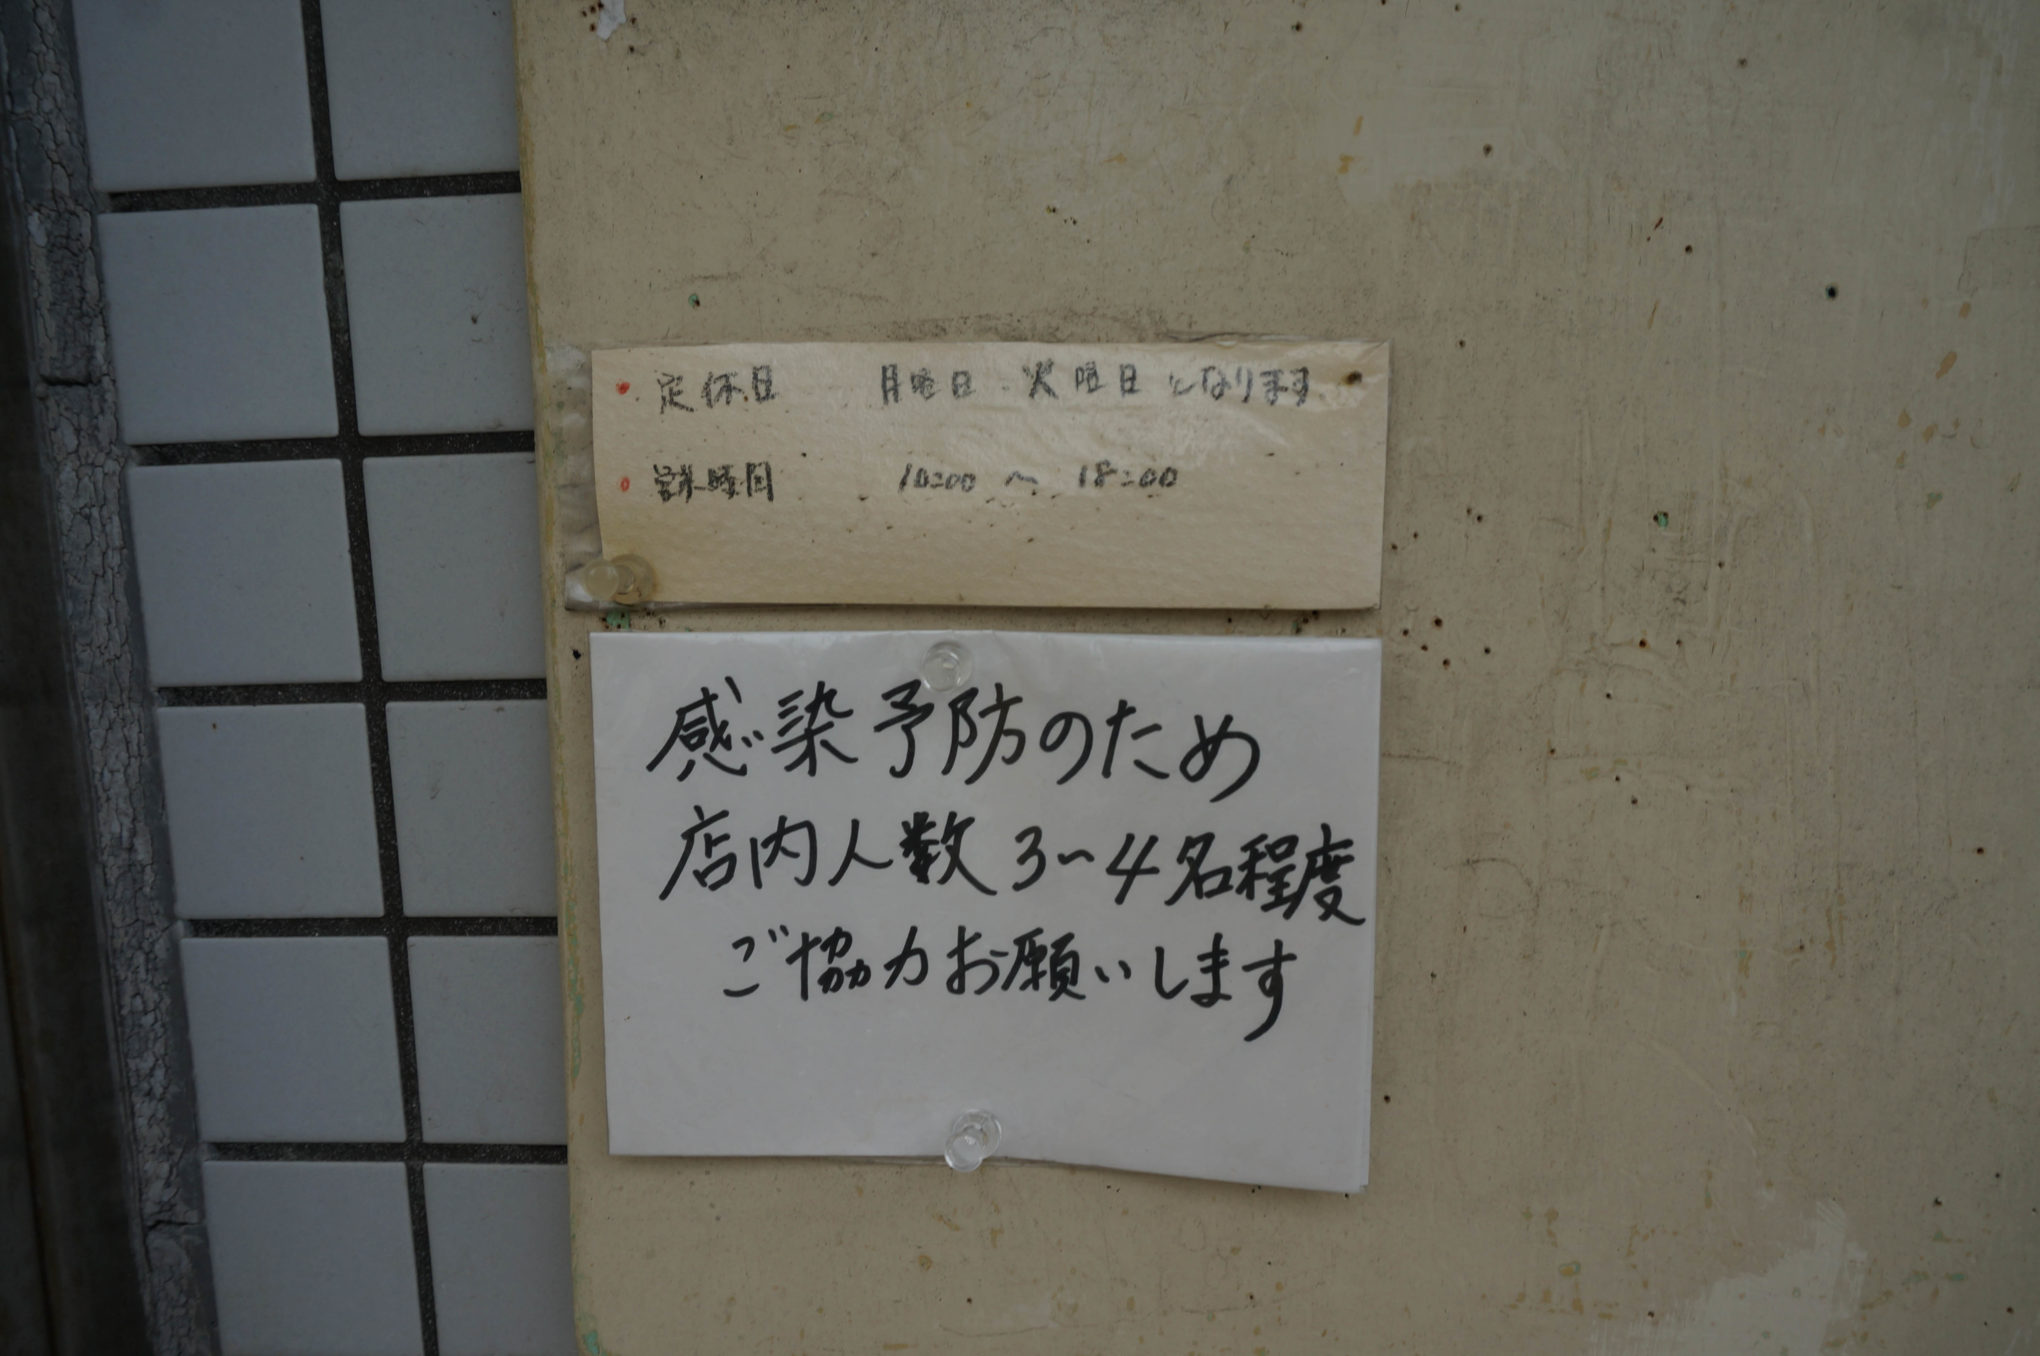 ・定休日 月曜日・火曜日となります
・営業時間 10:00 〜 18:00
感染予防のため
店内人数3〜4名程度
ご協力お願いします